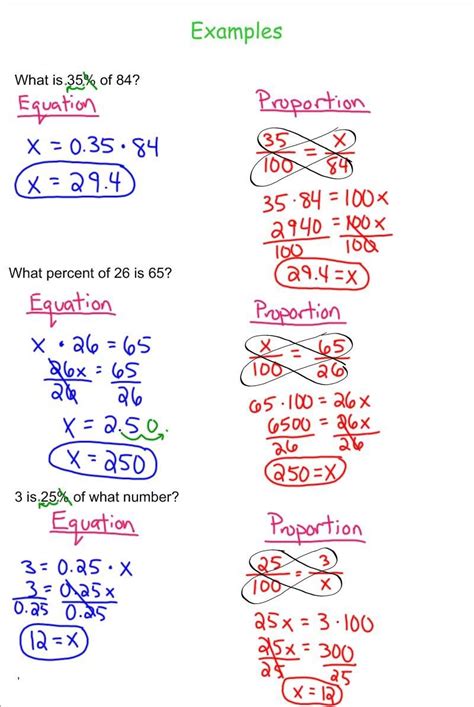 Examples
What is 35% of 84?
Equation
x = 0.35 · 84
x = 29.4
Proportion
35/100 = x/84
35·84 = 100x
2940/100 = 100x/100
29.4 = x
What percent of 26 is 65?
Equation
x · 26 = 65
26x/26 = 65/26
x = 2.50.
x = 250
Proportion
x/100 = 65/26
65·100 = 26x
6500/26 = 26x/26
250 = x
3 is 25% of what number?
Equation
3 = 0.25 · x
3/0.25 = 0.25x/0.25
12 = x
Proportion
25/100 = 3/x
25x = 3·100
25x/25 = 300/25
x = 12